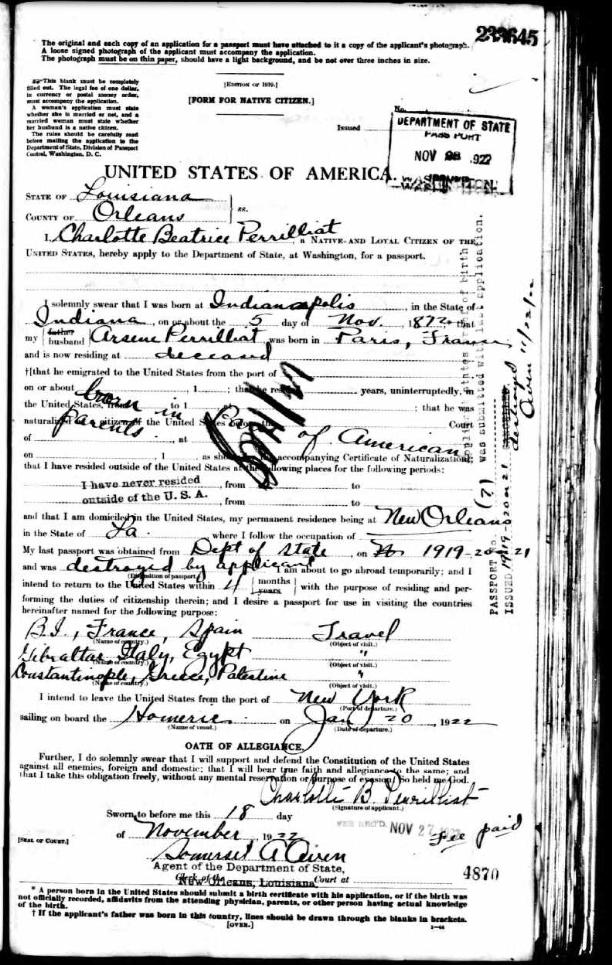 233645
The original and each copy of an application for a passport must have attached to it a copy of the applicant's photograph.
A loose signed photograph of the applicant must accompany the application.
The photograph must be on thin paper, should have a light background, and be not over three inches in size.
This blank must be completely
filled out. The legal fee of one dollar,
in currency or postal money order,
must accompany the application.
A woman's application must state
whether she is married or not, and a
married woman must state whether
her husband is a native citizen.
The rules should be carefully read
before mailing the application to the
Department of State, Division of Passport
Control, Washington, D. C.
[FORM FOR NATIVE CITIZEN.]
No.
Issued
DEPARTMENT OF STATE
PASSPORT
NOV 28 1922
WASHINGTON
UNITED STATES OF AMERICA.
STATE OF Louisiana
COUNTY OF Orleans ss.
I, Charlotte Beatrice Perrilliat, a NATIVE AND LOYAL CITIZEN OF THE
UNITED STATES, hereby apply to the Department of State, at Washington, for a passport.
I solemnly swear that I was born at Indianapolis in the State of
Indiana, on or about the 5 day of Nov., 1872 that
my father husband Arsene Perrilliat was born in Paris, France
and is now residing at deceased
†[that he emigrated to the United States from the port of
on or about 1 ; that he resided years, uninterruptedly, in
the United States, from born in 1 to 1 at ; that he was
naturalized as a citizen of the United States before the Court
of parents at of American
on , 1 , as shown by the accompanying Certificate of Naturalization];
that I have resided outside of the United States at the following places for the following periods:
I have never resided , from to
outside of the U. S. A. , from to
and that I am domiciled in the United States, my permanent residence being at New Orleans
in the State of La. where I follow the occupation of
My last passport was obtained from Dept of State, on 1919-20-21
and was destroyed by applicant I am about to go abroad temporarily; and I
(Disposition of passport.)
intend to return to the United States within 4 months years with the purpose of residing and per-
forming the duties of citizenship therein; and I desire a passport for use in visiting the countries
hereinafter named for the following purpose:
B.I., France, Spain Travel
(Name of country.) (Object of visit.)
Gibraltar Italy, Egypt "
(Name of country.) (Object of visit.)
Constantinople, Greece, Palestine "
(Name of country.) (Object of visit.)
I intend to leave the United States from the port of New York
(Port of departure.)
sailing on board the Homeric on Jan 20, 1922
(Name of vessel.) (Date of departure.)
OATH OF ALLEGIANCE.
Further, I do solemnly swear that I will support and defend the Constitution of the United States
against all enemies, foreign and domestic; that I will bear true faith and allegiance to the same; and
that I take this obligation freely, without any mental reservation or purpose of evasion: So help me God.
Charlotte B. Perrilliat
(Signature of applicant.)
Sworn to before me this 18 day
of November, 1922
NOV 27
Fee paid
[SEAL OF COURT.]
Somerset A Owen
Agent of the Department of State,
Clerk of the Court at
New Orleans, Louisiana.
4870
* A person born in the United States should submit a birth certificate with his application, or if the birth was
not officially recorded, affidavits from the attending physician, parents, or other person having actual knowledge
of the birth.
† If the applicant's father was born in this country, lines should be drawn through the blanks in brackets.
[OVER.]
was submitted with application.
PASSPORT No.
ISSUED 1919-20 & 21